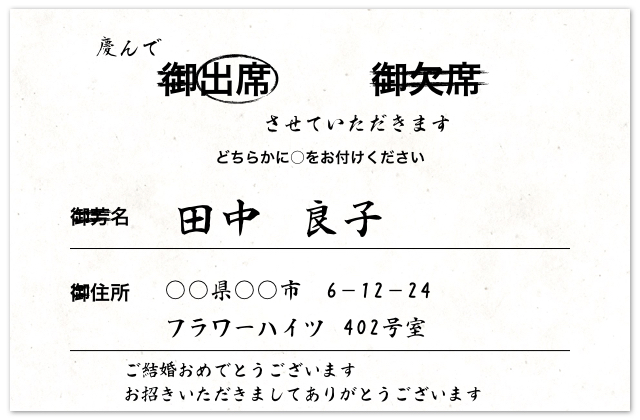 慶んで
御出席 御欠席
させていただきます
どちらかに○をお付けください
御芳名 田中 良子
御住所 ○○県○○市 6-12-24
フラワーハイツ 402号室
ご結婚おめでとうございます
お招きいただきましてありがとうございます